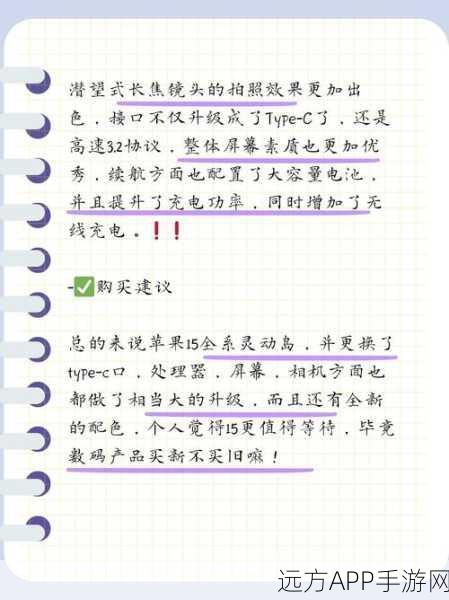 潜望式长焦镜头的拍照效果更加出
色，接口不仅升级成了Type-C了，还是
高速3.2协议，整体屏幕素质也更加优
秀，续航方面也配置了大容量电池，
并且提升了充电功率，同时增加了无
线充电。❗❗
-✅购买建议
总的来说苹果15全系灵动岛，并更换了
type-c口，处理器，屏幕，相机方面也
都做了相当大的升级，而且还有全新
的配色，个人觉得15更值得等待，毕竟
数码产品买新不买旧嘛！
远方APP手游网